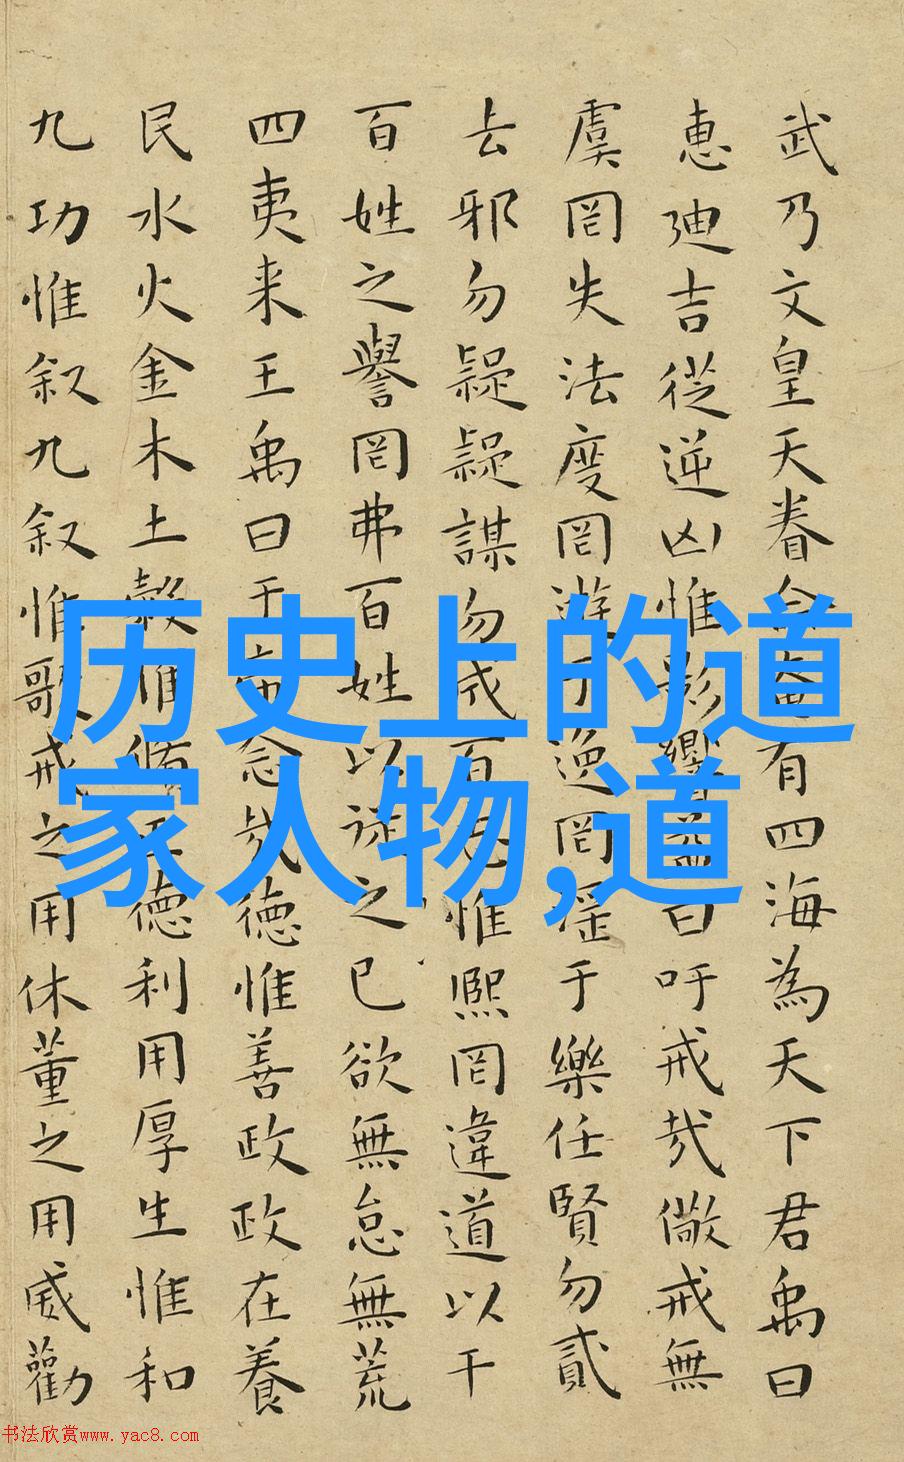 武乃文皇天眷命奄有四海為天下君禹曰
惠迪吉從逆凶惟影響益曰吁戒哉儆戒無
虞罔失法度罔遊于逸罔淫于樂任賢勿貳
去邪勿疑疑謀勿成百志惟熙罔違道以干
百姓之譽罔弗百姓以從之己欲無怠無荒
四夷来王禹曰于帝念哉德惟善政政在養
民水火金木土穀惟修正德利用厚生惟和
九功惟叙九叙惟歌戒之用休董之用威勸
历史上的道
家人物,道
书法欣赏www.yac8.com